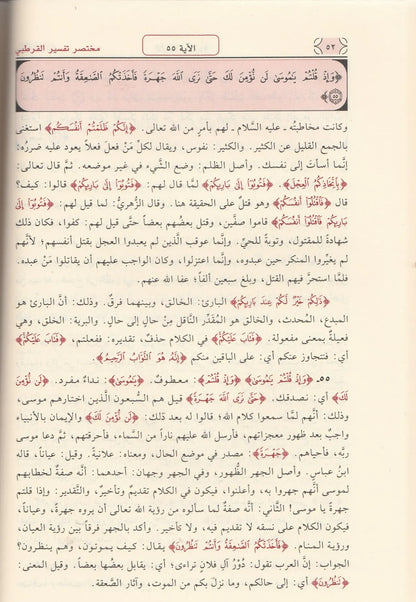 ٥٢
الآية ٥٥
مختصر تفسير القرطبي
﴿وَإِذْ قُلْتُمْ يَٰمُوسَىٰ لَن نُّؤْمِنَ لَكَ حَتَّىٰ نَرَى ٱللَّهَ جَهْرَةً فَأَخَذَتْكُمُ ٱلصَّٰعِقَةُ وَأَنتُمْ تَنظُرُونَ
٥٥﴾
وكانت مخاطبتُه ـ عليه السلام ـ لهم بأمرٍ من الله تعالى. ﴿إِنَّكُمْ ظَلَمْتُمْ أَنفُسَكُم﴾ استغنى
بالجمع القليل عن الكثير. والكثير: نفوس، ويقال لكلِّ مَنْ فعل فعلاً يعود عليه ضررُه:
إنَّما أسأتَ إلى نفسك. وأصل الظلم: وضع الشَّيء في غير موضعه. ثمَّ قال تعالى:
﴿بِٱتِّخَاذِكُمُ ٱلْعِجْلَ﴾. ﴿فَتُوبُوٓا۟ إِلَىٰ بَارِئِكُمْ﴾ لمَّا قال لهم: ﴿فَتُوبُوٓا۟ إِلَىٰ بَارِئِكُمْ﴾ قالوا: كيف؟
قال: ﴿فَٱقْتُلُوٓا۟ أَنفُسَكُمْ﴾ وهو قتلٌ على الحقيقة هنا. وقال الزُّهريُّ: لما قيل لهم: ﴿فَتُوبُوٓا۟ إِلَىٰ
بَارِئِكُمْ فَٱقْتُلُوٓا۟ أَنفُسَكُمْ﴾ قاموا صفَّين، وقتل بعضُهم بعضاً حتَّى قيل لهم: كفوا، فكان ذلك
شهادةً للمقتول، وتوبةً للحيِّ. وإنَّما عوقب الَّذين لم يعبدوا العجل بقتل أنفسهم؛ لأنَّهم
لم يغيِّروا المنكر حين عبدوه، وإنَّما اعتزلوا، وكان الواجب عليهم أن يقاتلوا مَنْ عبده.
فلمَّا استحرَّ فيهم القتل، وبلغ سبعين ألفاً؛ عفا الله عنهم.
﴿ذَٰلِكُمْ خَيْرٌ لَّكُمْ عِندَ بَارِئِكُمْ﴾ البارئ: الخالق، وبينهما فرقٌ. وذلك: أنَّ البارئ هو
المبدع، المُحدث، والخالق هو المُقدِّر النَّاقل مِنْ حالٍ إلى حالٍ. والبرية: الخلق، وهي
فعيلةٌ بمعنى مفعولة. ﴿فَتَابَ عَلَيْكُمْ﴾ في الكلام حذفٌ، تقديره: ففعلتم، ﴿فَتَابَ عَلَيْكُمْ﴾
أي: فتتجاوز عنكم أي: على الباقين منكم ﴿إِنَّهُۥ هُوَ ٱلتَّوَّابُ ٱلرَّحِيمُ﴾.
٥٥ ـ ﴿وَإِذْ قُلْتُمْ يَٰمُوسَىٰ﴾ ﴿وَإِذْ قُلْتُمْ﴾: معطوفٌ. ﴿يَٰمُوسَىٰ﴾: نداءٌ مفرد. ﴿لَن نُّؤْمِنَ
لَكَ﴾ أي: نصدقك. ﴿حَتَّىٰ نَرَى ٱللَّهَ جَهْرَةً﴾ قيل هم السبعون الَّذين اختارهم موسى،
وذلك: أنَّهم لمَّا سمعوا كلام الله؛ قالوا له بعد ذلك: ﴿لَن نُّؤْمِنَ لَكَ﴾ والإيمان بالأنبياء
واجبٌ بعد ظهور معجزاتهم، فأرسل الله عليهم ناراً من السَّماء، فأحرقتهم، ثمَّ دعا موسى
ربَّه، فأحياهم. ﴿جَهْرَةً﴾: مصدر في موضع الحال، ومعناه: علانيةً. وقيل: عياناً، قاله
ابنُ عباسٍ. وأصل الجهر الظُّهور، وفي الجهر وجهان: أحدهما: أنَّه صفةٌ لخطابهم
لموسى أنَّهم جهروا به، وأعلنوا، فيكون في الكلام تقديمٌ وتأخيرٌ، والتَّقدير: وإذا قلتم
جهرةً يا موسى! الثَّاني: أنَّه صفةٌ لما سألوه من رؤية الله تعالى أن يروه جهرةً، وعياناً،
فيكون الكلام على نسقه لا تقديم فيه، ولا تأخير. وأكد بالجهر فرقاً بين رؤية العيان،
ورؤية المنام. ﴿فَأَخَذَتْكُمُ ٱلصَّٰعِقَةُ وَأَنتُمْ تَنظُرُونَ﴾ يقال: كيف يموتون، وهم ينظرون؟
الجواب: إنَّ العرب تقول: دُورُ آلِ فلانٍ تراءى؛ أي: يقابل بعضُها بعضاً. وقيل المعنى:
﴿تَنظُرُونَ﴾ أي: إلى حالكم، وما نزل بكم من الموت، وآثار الصَّعقة.